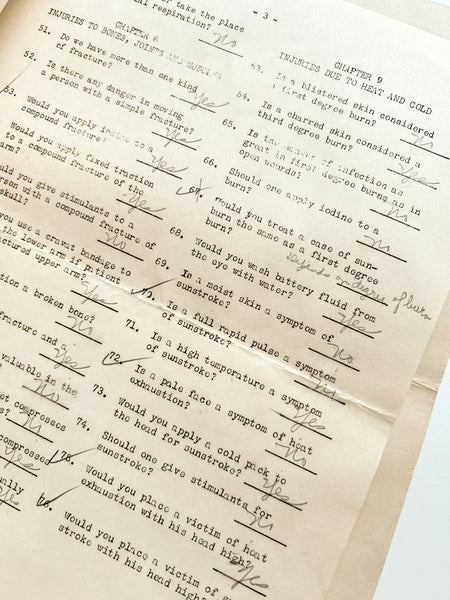 - 3 -
take the place
respiration?
No
CHAPTER 8
INJURIES TO BONES, JOINTS AND MUSCLES
51. Do we have more than one kind
of fracture?
Yes
52. Is there any danger in moving
a person with a simple fracture?
Yes
53. Would you apply iodine to a
compound fracture?
Yes
Would you apply fixed traction
to a compound fracture of the
arm?
Yes
you give stimulants to a
person with a compound fracture of
skull?
No
you use a cravat bandage to
the lower arm if patient
fractured upper arm?
Yes
a broken bone?
No
fracture and a
Yes
valuable in the
No
compresses
compresses
Yes
Yes
CHAPTER 9
INJURIES DUE TO HEAT AND COLD
Is a blistered skin considered
a first degree burn?
No
64. Is a charred skin considered a
third degree burn?
Yes
65. Is the danger of infection as
great in first degree burns as in
open wounds?
No
66. Should one apply iodine to a
burn?
No
67. Would you treat a case of sun-
burn the same as a first degree
burn?
Depends on degree of burn
68. Would you wash battery fluid from
the eye with water?
Yes
69. Is a moist skin a symptom of
sunstroke?
No
70. Is a full rapid pulse a symptom
of sunstroke?
71. Is a high temperature a symptom
of sunstroke?
Yes
72. Is a pale face a symptom of heat
exhaustion?
No
73. Would you apply a cold pack to
the head for sunstroke?
Yes
74. Should one give stimulants for
sunstroke?
No
75. Would you place a victim of heat
exhaustion with his head high?
Yes
76. Would you place a victim of sun
stroke with his head high